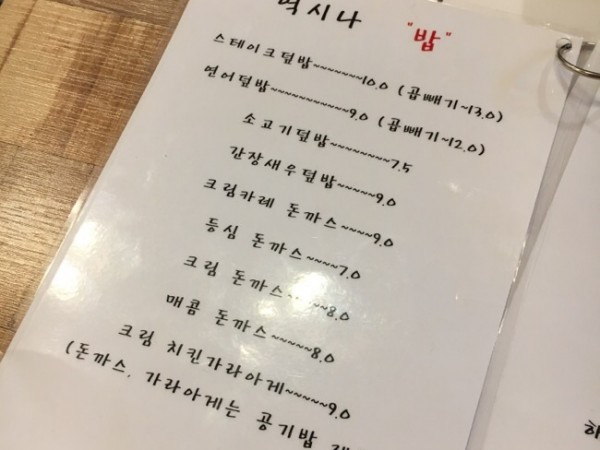 역시나 "밥"
스테이크덮밥~~~~~~~10.0 (곱빼기~13.0)
연어덮밥~~~~~~~~~~9.0 (곱빼기~12.0)
소고기덮밥~~~~~~~~7.5
간장새우덮밥~~~~~9.0
크림카레 돈까스~~~~9.0
등심 돈까스~~~~7.0
크림 돈까스~~~~~8.0
매콤 돈까스~~~~~8.0
크림 치킨가라아게~~~~~9.0
(돈까스, 가라아게는 공기밥
하